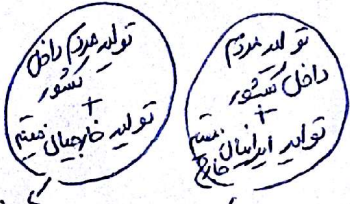 تولید مردم
داخل کشور
+
تولید ایرانیان مقیم
خارج
تولید مردم داخل
کشور
+
تولید خارجیان مقیم